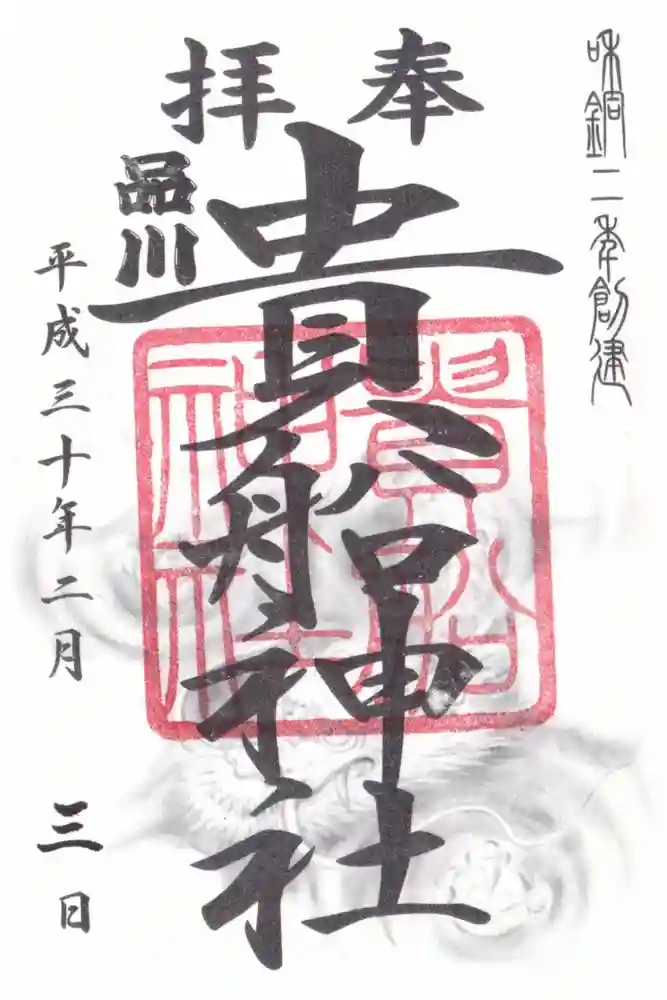 和銅二年創建
奉拝
品川
貴船神社
貴船神社
平成三十年二月三日